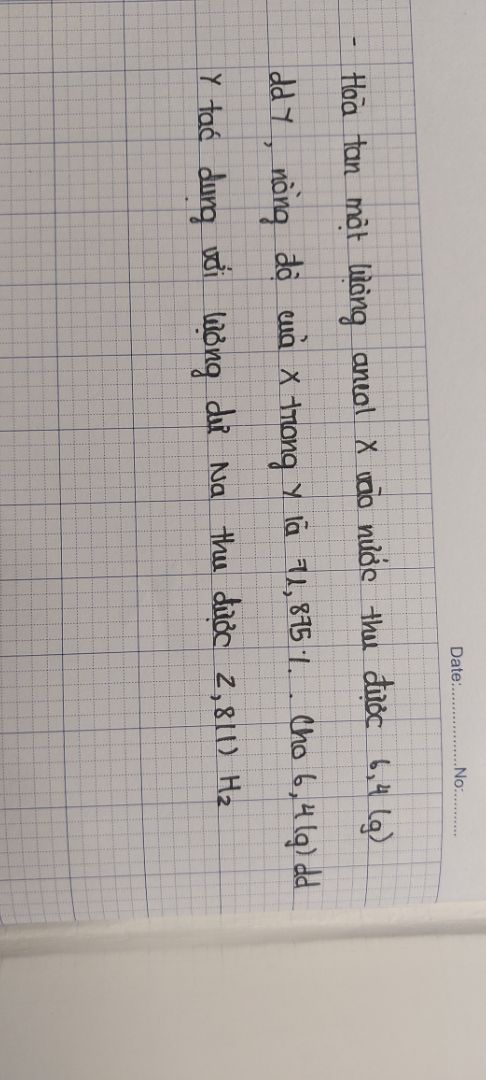 Date:...................No:..........
- Hòa tan một lượng ancol X vào nước thu được 6,4 (g)
dd Y, nồng độ của X trong Y là 71,875%. Cho 6,4 (g) dd
Y tác dụng với lượng dư Na thu được 2,8 (l) H2